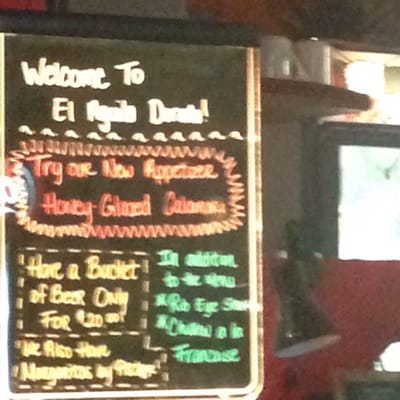 Welcome To
El Aguila Dorada!
Try our New Appetizer
Honey-Glazed Calamari
Have a Bucket
of Beer Only
For $20.00!
We Also Have
Margaritas by Pitcher!
In addition
to the menu
*Rib Eye Steak
*Chicken a la
Francaise